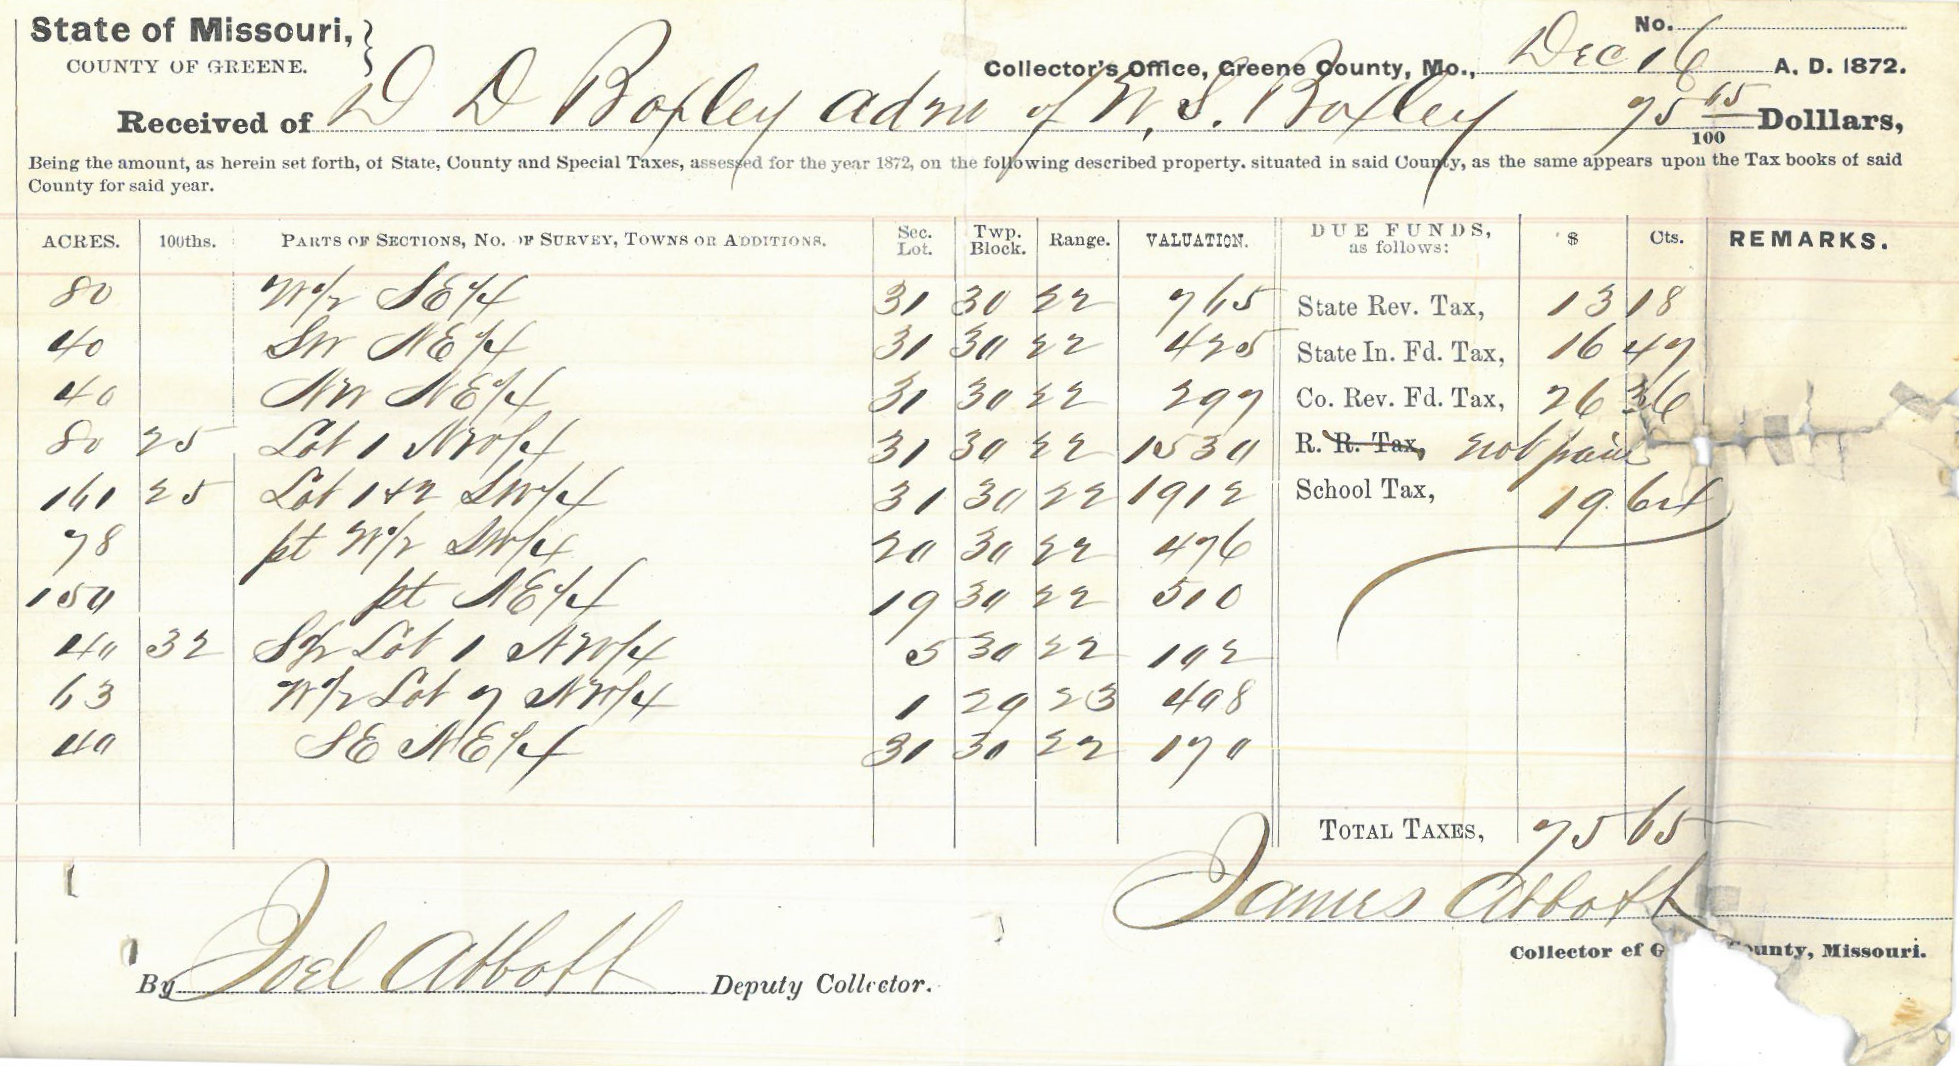 State of Missouri, }
COUNTY OF GREENE.
No.
Collector's Office, Greene County, Mo., Dec 16 A. D. 1872.
Received of D D Boxley adm of W. S. Boxley 75 65/100 Dolllars,
Being the amount, as herein set forth, of State, County and Special Taxes, assessed for the year 1872, on the following described property. situated in said County, as the same appears upon the Tax books of said
County for said year.
ACRES. 100ths. PARTS OF SECTIONS, NO. OF SURVEY, TOWNS OR ADDITIONS. Sec. Lot. Twp. Block. Range. VALUATION. DUE FUNDS, as follows: $ Cts. REMARKS.
80 W/2 SE/4 31 30 22 765 State Rev. Tax, 13 18
40 SW NE/4 31 30 22 425 State In. Fd. Tax, 16 47
40 NW NE/4 31 30 22 297 Co. Rev. Fd. Tax, 26 36
80 25 Lot 1 NW/4 31 30 22 1530 R. R. Tax, not paid
161 25 Lot 1 & 2 SW/4 31 30 22 1912 School Tax, 19. 64
78 pt W/2 SW/4 20 30 22 476
150 pt NE/4 19 30 22 510
40 32 S/2 Lot 1 NW/4 5 30 22 102
63 W/2 Lot 7 NW/4 1 29 23 408
40 SE NE/4 31 30 22 170
TOTAL TAXES, 75 65
James Abbott
Collector of G ounty, Missouri.
By Joel Abbott Deputy Collector.